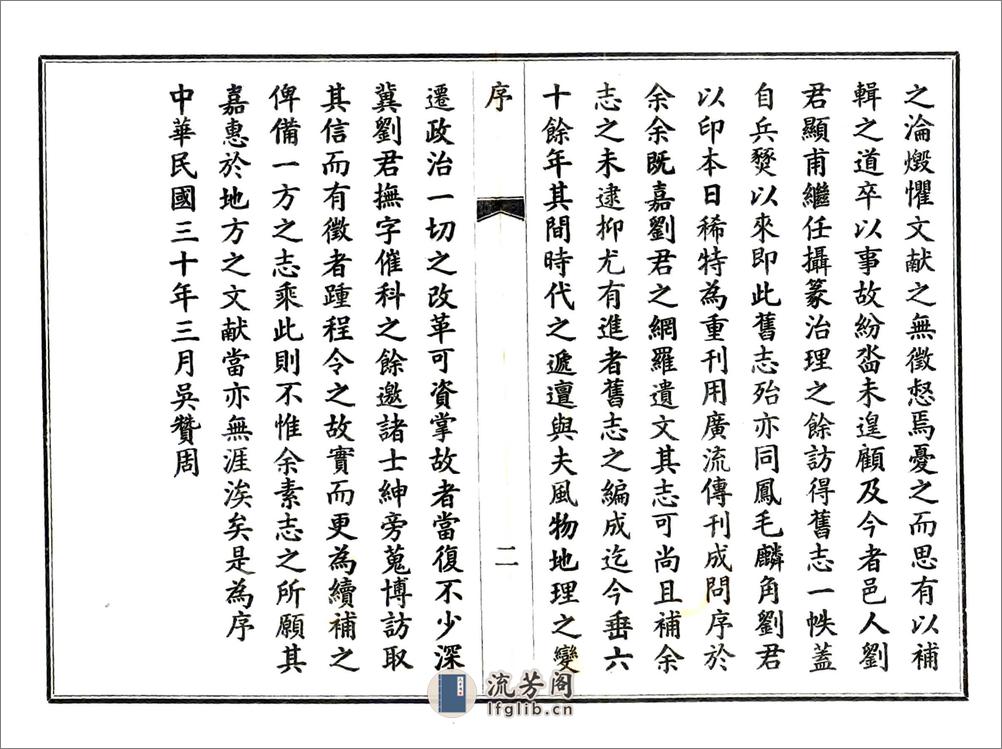 之淪燬懼文献之無徵惄焉憂之而思有以補
輯之道卒以事故紛沓未遑顧及今者邑人劉
君顯甫繼任攝篆治理之餘訪得舊志一帙蓋
自兵燹以來即此舊志殆亦同鳳毛麟角劉君
以印本日稀特為重刊用廣流傳刊成問序於
余余既嘉劉君之網羅遺文其志可尚且補余
志之未逮抑尤有進者舊志之編成迄今垂六
十餘年其間時代之遞亶與夫風物地理之變
序
二
遷政治一切之改革可資掌故者當復不少深
冀劉君撫字催科之餘邀諸士紳旁蒐博訪取
其信而有徵者踵程令之故實而更為續補之
俾備一方之志乘此則不惟余素志之所願其
嘉惠於地方之文献當亦無涯涘矣是為序
中華民國三十年三月吳贊周
流芳阁
lfglib.cn